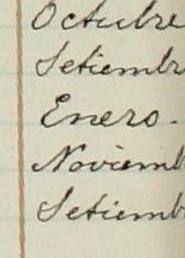 Octubre
Setiembr
Enero.
Noviemb
Setiemb